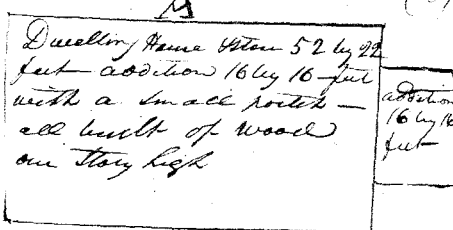 A
Dwelling House & Store 52 by 22
feet addition 16 by 16 feet
with a small portch —
all built of wood
one Story high
addition
16 by 16
feet